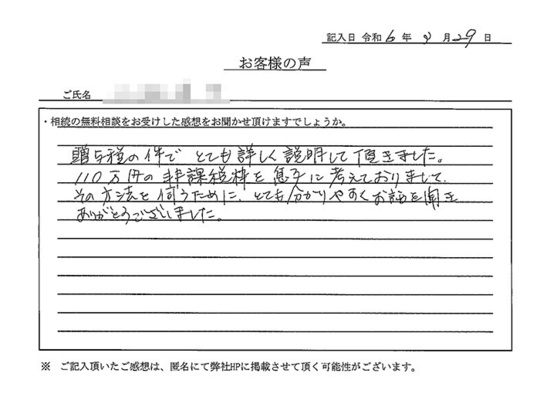 記入日 令和 6 年 3 月 29 日
お客様の声
ご氏名
・相続の無料相談をお受けした感想をお聞かせ頂けますでしょうか。
贈与税の件で とても詳しく説明して頂きました。
110万円の非課税枠を息子に考えておりまして、
その方法を伺うために、とても分かりやすくお話を聞き
ありがとうございました。
※ ご記入頂いたご感想は、匿名にて弊社HPに掲載させて頂く可能性がございます。